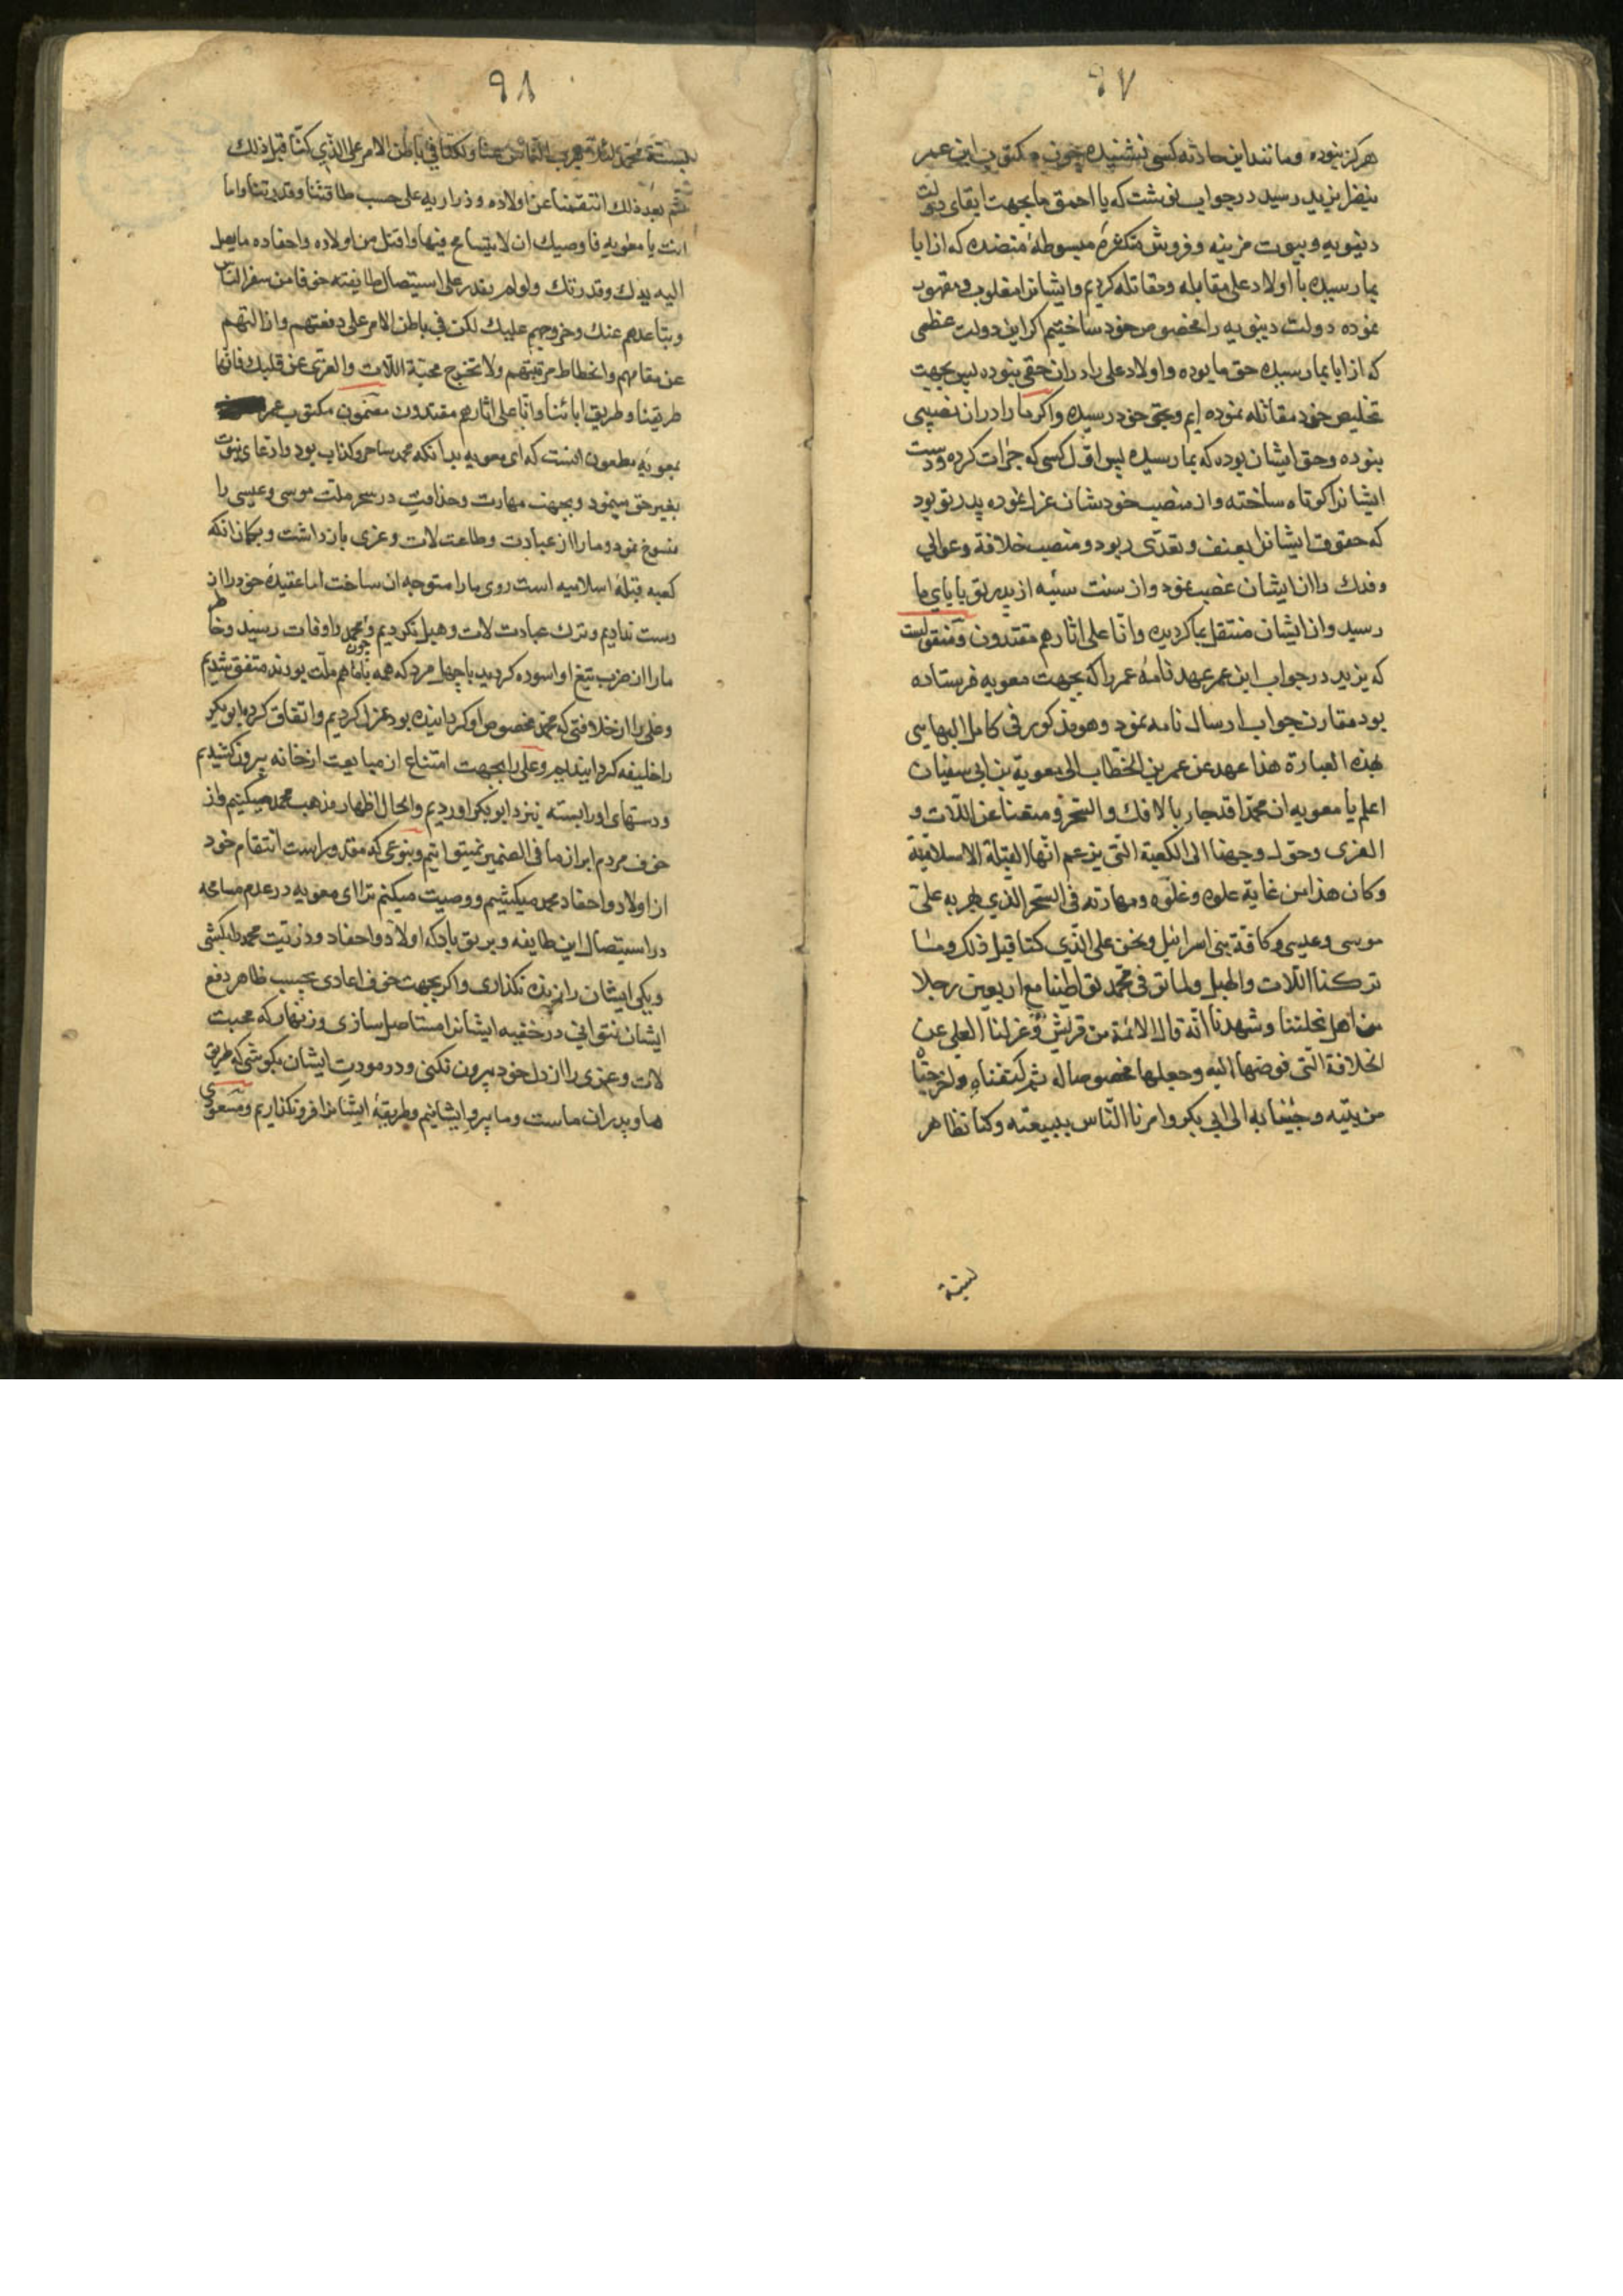 ٩٧
هرکز نبوده و مانند این حادثه کسی نشنیده چون مکتوب ابن عمر
بنظر یزید رسید در جواب نوشت که یا احمق ما بجهت ابقای دولت
دنیویه و بیوت مزینه و فروش متکثره مبسوطهٔ منضده که از ابا
بما رسیده با اولاد علی مقابله و مقاتله کردیم و ایشانرا مغلوب و مقهور
نموده دولت دنیویه را مخصوص خود ساختیم اکر این دولت عظمی
که از ابا بما رسیده حق ما بوده و اولاد علی را در ان حقی نبوده پس بجهت
تخلیص خود مقاتله نموده ایم و بحق خود رسیده و اکر ما را در ان نصیبی
نبوده و حق ایشان بوده که بما رسیده پس اول کسی که جرات کرده و دست
ایشانرا کوتاه ساخته و از منصب خودشان عزل نموده پدر تو بود
که حقوق ایشانرا بعنف و تعدی ربود و منصب خلافة و عوالی
و فدك را از ایشان غصب نمود و ان سنت سیئه از پدر تو بابای ما
رسید و از ایشان منتقل بما کردیده و انا علی اثارهم مقتدون و منقولست
که یزید در جواب ابن عمر عهدنامهٔ عمر را که بجهت معویه فرستاده
بود مقارن جواب ارسال نامه نمود و هو مذکور فی کامل البهایی
بهذه العبارة هذا عهد عن عمر بن الخطاب الی معویة بن ابی سفیان
اعلم یا معویه ان محمدا قد جاء بالافك و السحر و منعنا عن اللات و
العزی و حول وجهنا الی الکعبة التی یزعم انها القبلة الاسلامیة
و کان هذا من غایة علوه و غلوه و مهارته فی السحر الذی مهر به علی
موسی و عیسی و کافة بنی اسرائیل و نحن علی الذی کنا قبل ذلك و ما
ترکنا اللات و الهبل و لما توفی محمد تواطینا مع اربعین رجلا
من اهل نحلتنا و شهدنا انه قال الائمة من قریش و عزلنا العلی عن
الخلافة التی فوضها الیه و جعلها مخصوصا له ثم کتفناه و اخرجنا
من بیته و جئنا به الی ابی بکر و امرنا الناس ببیعته و کنا نظاهر
٩٨
محمد لئلا یهرب الناس منا و لکنا فی باطن الامر علی الذی کنا قبل ذلك
ثم بعد ذلك انتقمنا عن اولاده و ذراریه علی حسب طاقتنا و قدرتنا و اما
انت یا معویه فاوصیك ان لا تتسامح فیها و اقتل من اولاده و احفاده ما یصل
الیه یدك و قدرتك و لو لم یقدر علی استیصال طایفته خوفا من سفر الناس
و تباعدهم عنك و خروجهم علیك لکن فی باطن الامر علی دفعتهم و ازالتهم
عن مقامهم و انحطاط مرتبتهم و لا تخرج محبة اللات و العزی عن قلبك فانها
طریقنا و طریق ابائنا و انا علی اثارهم مقتدون مضمون مکتوب عمر
بمعویه مطعون انست که ای معویه بدانکه محمد ساحر و کذاب بود و ادعای نبوت
بغیر حق مینمود و بجهت مهارت و حذاقت در سحر ملت موسی و عیسی را
منسوخ نمود و ما را از عبادت و طاعت لات و عزی باز داشت و بکمان انکه
کعبه قبلهٔ اسلامیه است روی ما را متوجه ان ساخت اما عقیدهٔ خود را از
دست ندادیم و ترك عبادت لات و هبل نکردیم و چون محمد را وفات رسید و خاطر
ما را از ضرب تیغ او اسوده کردید با چهل مرد که همه با ما هم ملت بودند متفق شدیم
و علی را از خلافتی که محمد مخصوص او کردانیده بود عزل کردیم و اتفاق کرده ابو بکر
را خلیفه کردانیدیم و علی را بجهت امتناع از مبایعت از خانه بیرون کشیدیم
و دستهای او را بسته بنزد ابو بکر اوردیم و الحال اظهار مذهب محمد میکنیم و از
خوف مردم ابراز ما فی الضمیر نمیتوانیم و بنوعی که مقدور است انتقام خود
از اولاد و احفاد محمد میکشیم و وصیت میکنم ترا ای معویه در عدم مسامحه
در استیصال این طایفه و بر تو باد که اولاد و احفاد و ذریت محمد را بکشی
و یکی ایشان را زنده نکذاری و اکر بجهت خوف اعادی بحسب ظاهر دفع
ایشان نتوانی در خفیه ایشانرا مستاصل سازی و زنهار که محبت
لات و عزی را از دل خود بیرون نکنی و در مودت ایشان بکوشی که طریق
ما و پدران ماست و ما پیرو ایشانیم و طریقهٔ ایشانرا فرو نکذاریم و مسعودی